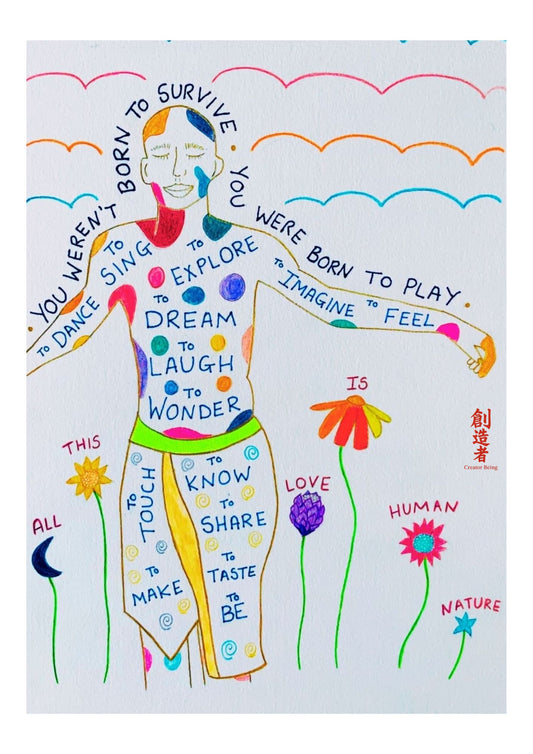 YOU WEREN'T BORN TO SURVIVE · YOU WERE BORN TO PLAY ·
TO DANCE
TO SING
TO EXPLORE
TO IMAGINE
TO FEEL
TO DREAM
TO LAUGH
TO WONDER
TO TOUCH
TO MAKE
TO KNOW
TO SHARE
TO TASTE
TO BE
ALL
THIS
LOVE
IS
HUMAN
NATURE
創造者
Creator Being